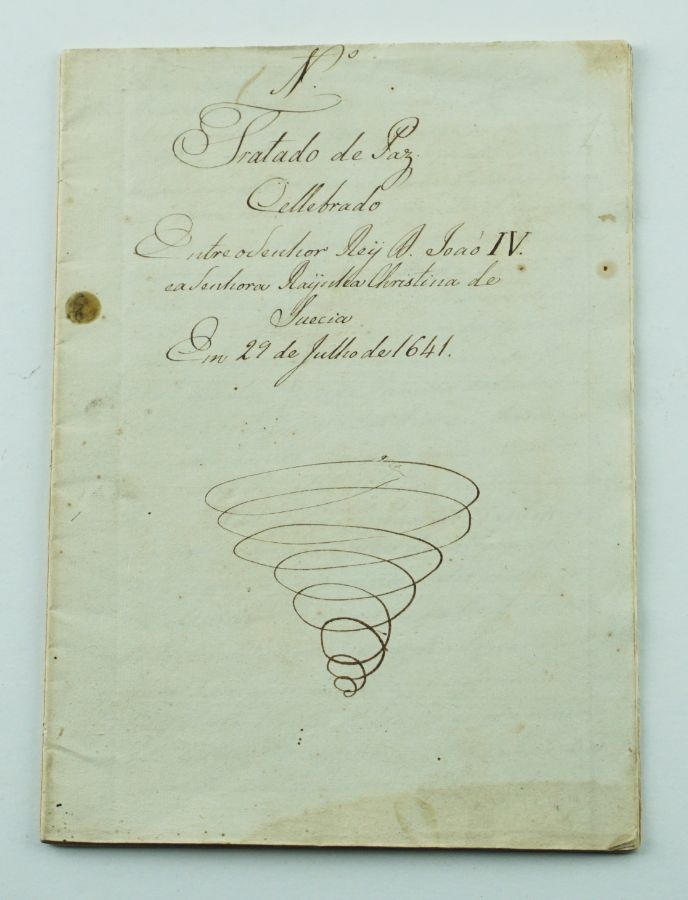 N.º
Tratado de Paz.
Cellebrado
Entre o Senhor Reÿ D. Joaõ IV.
e a Senhora Raÿnha Christina de
Suecia
Em 29 de Julho de 1641.